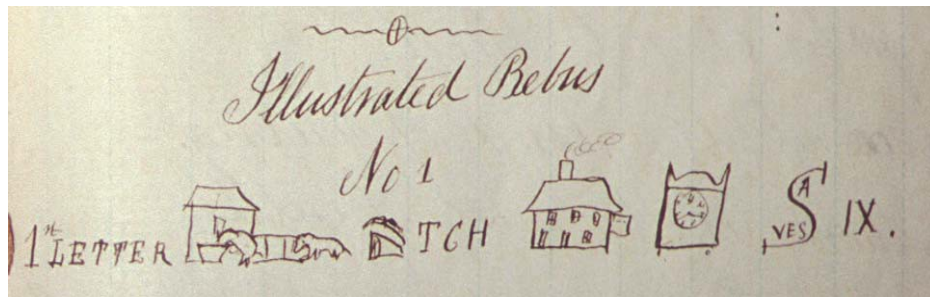 Illustrated Rebus
No 1
1st LETTER TCH A VES S IX.